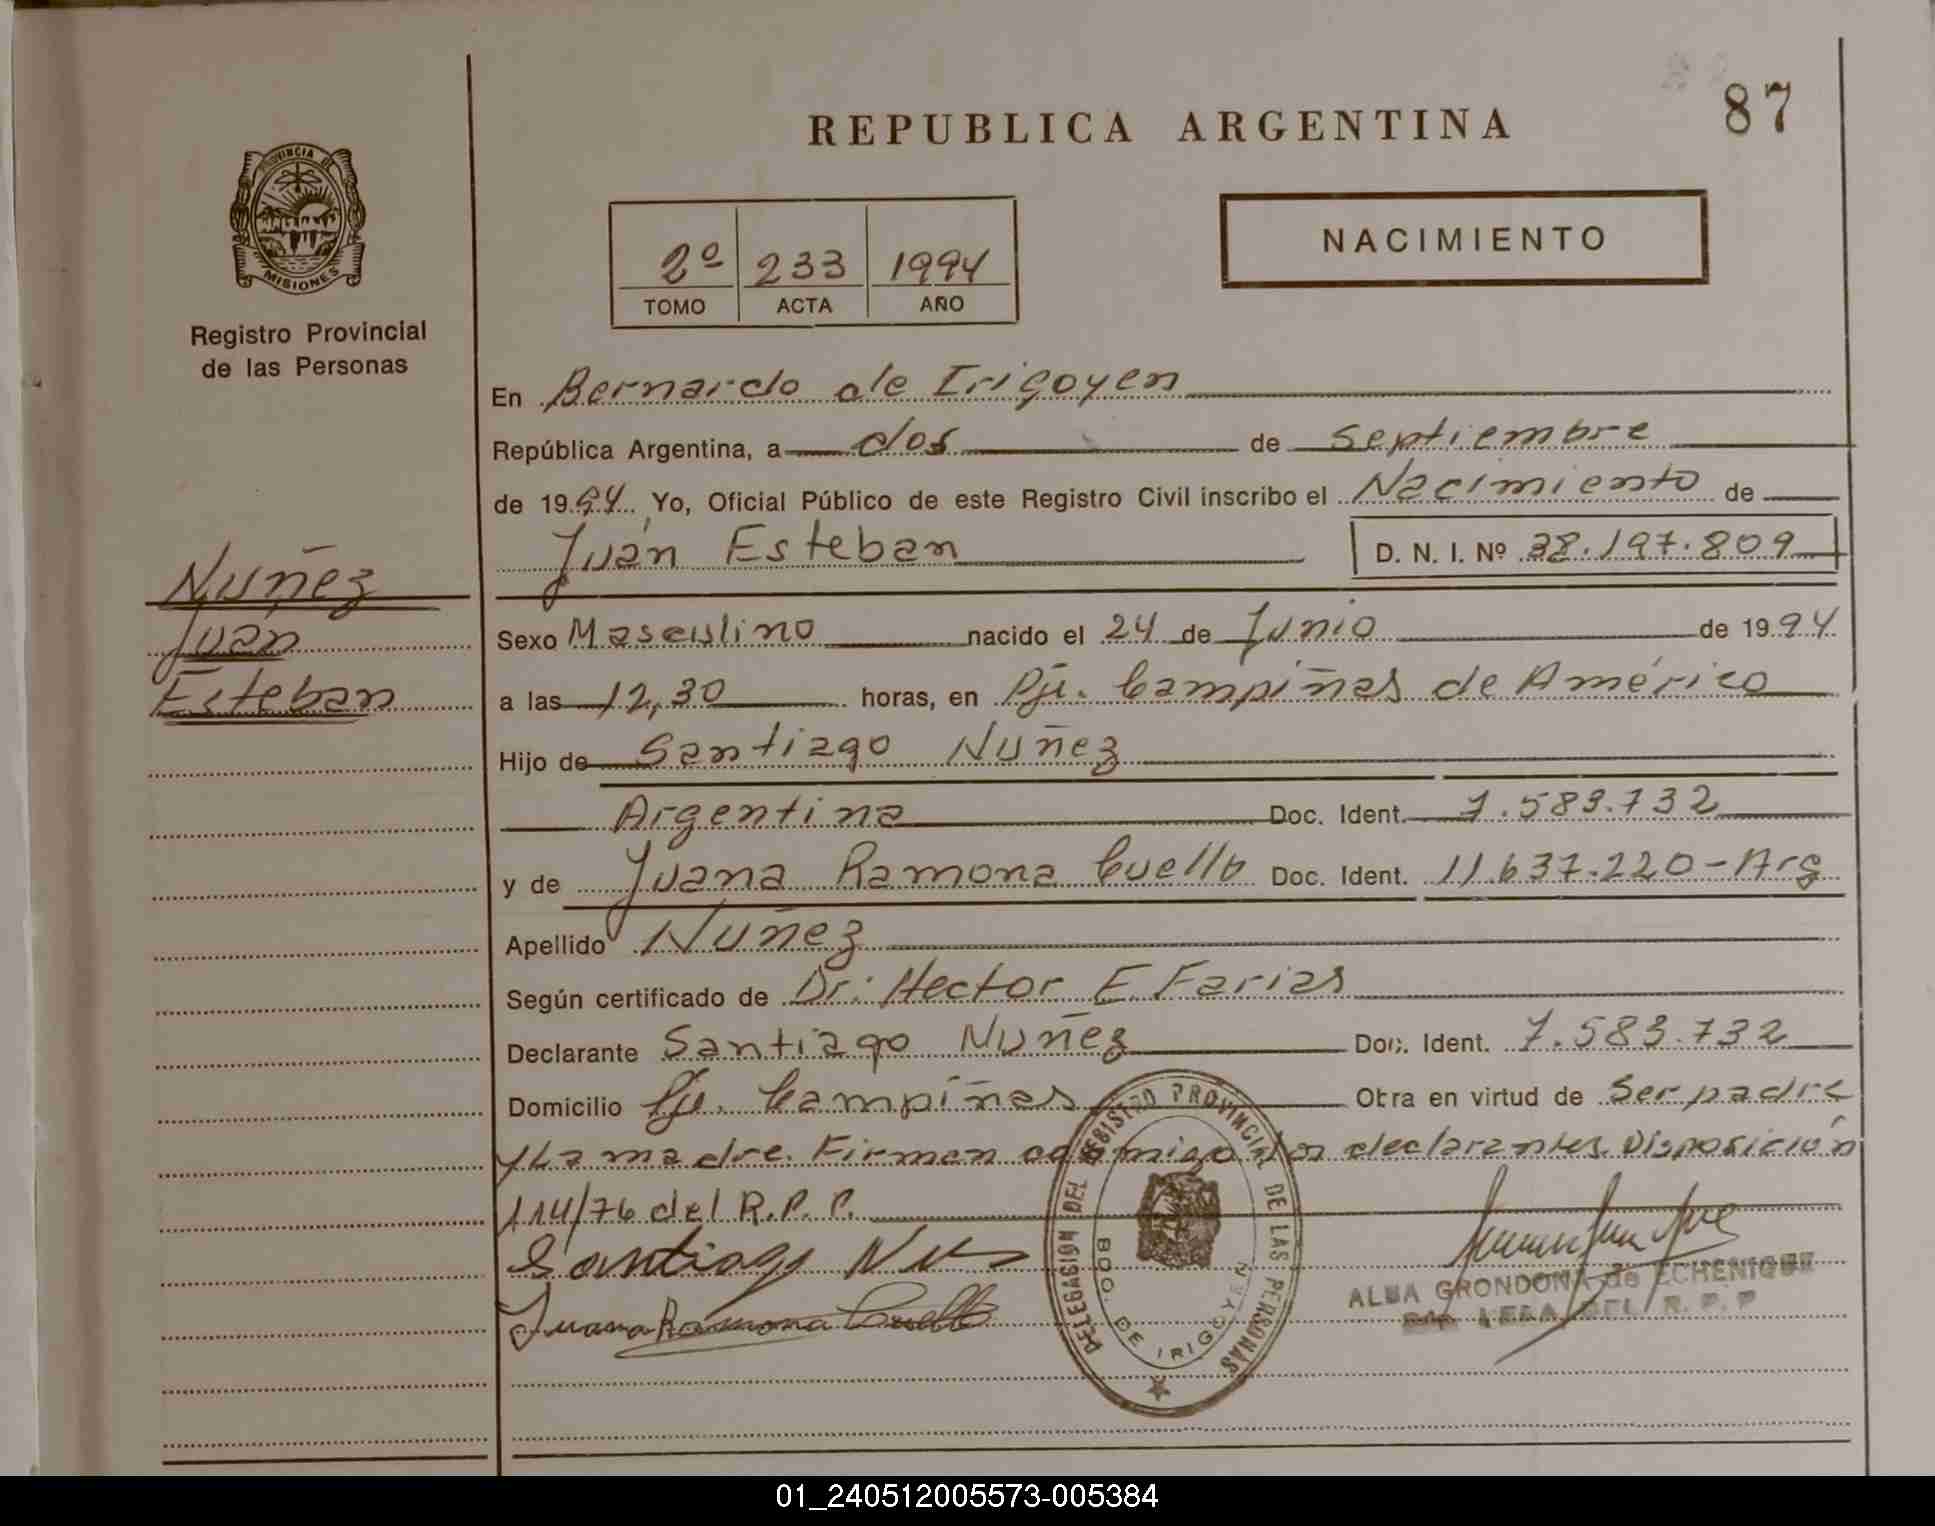 87
REPUBLICA ARGENTINA
PROVINCIA DE
MISIONES
Registro Provincial
de las Personas
2º 233 1994
TOMO ACTA AÑO
NACIMIENTO
En Bernardo de Irigoyen
República Argentina, a dos de septiembre
de 1994. Yo, Oficial Público de este Registro Civil inscribo el Nacimiento de
Juan Esteban D. N. I. Nº 38.197.809
Nuñez
Juan
Esteban
Sexo Masculino nacido el 24 de Junio de 1994
a las 12,30 horas, en Pje. Campiñas de América
Hijo de Santiago Nuñez
Argentina Doc. Ident. 7.583.732
y de Juana Ramona Cuello Doc. Ident. 11.637.220-Arg
Apellido Nuñez
Según certificado de Dr. Hector E. Farias
Declarante Santiago Nuñez Doc. Ident. 7.583.732
Domicilio Pje. Campiñas Obra en virtud de Ser padre
y La madre. Firman conmigo los declarantes. Disposición
114/76 del R.P.P.
Santiago Nu
Juana Ramona Cuello
DELEGACION DEL REGISTRO PROVINCIAL DE LAS PERSONAS
BDO. DE IRIGOYEN
ALBA GRONDONA de ECHENIQUE
DEL R. P. P
01_240512005573-005384